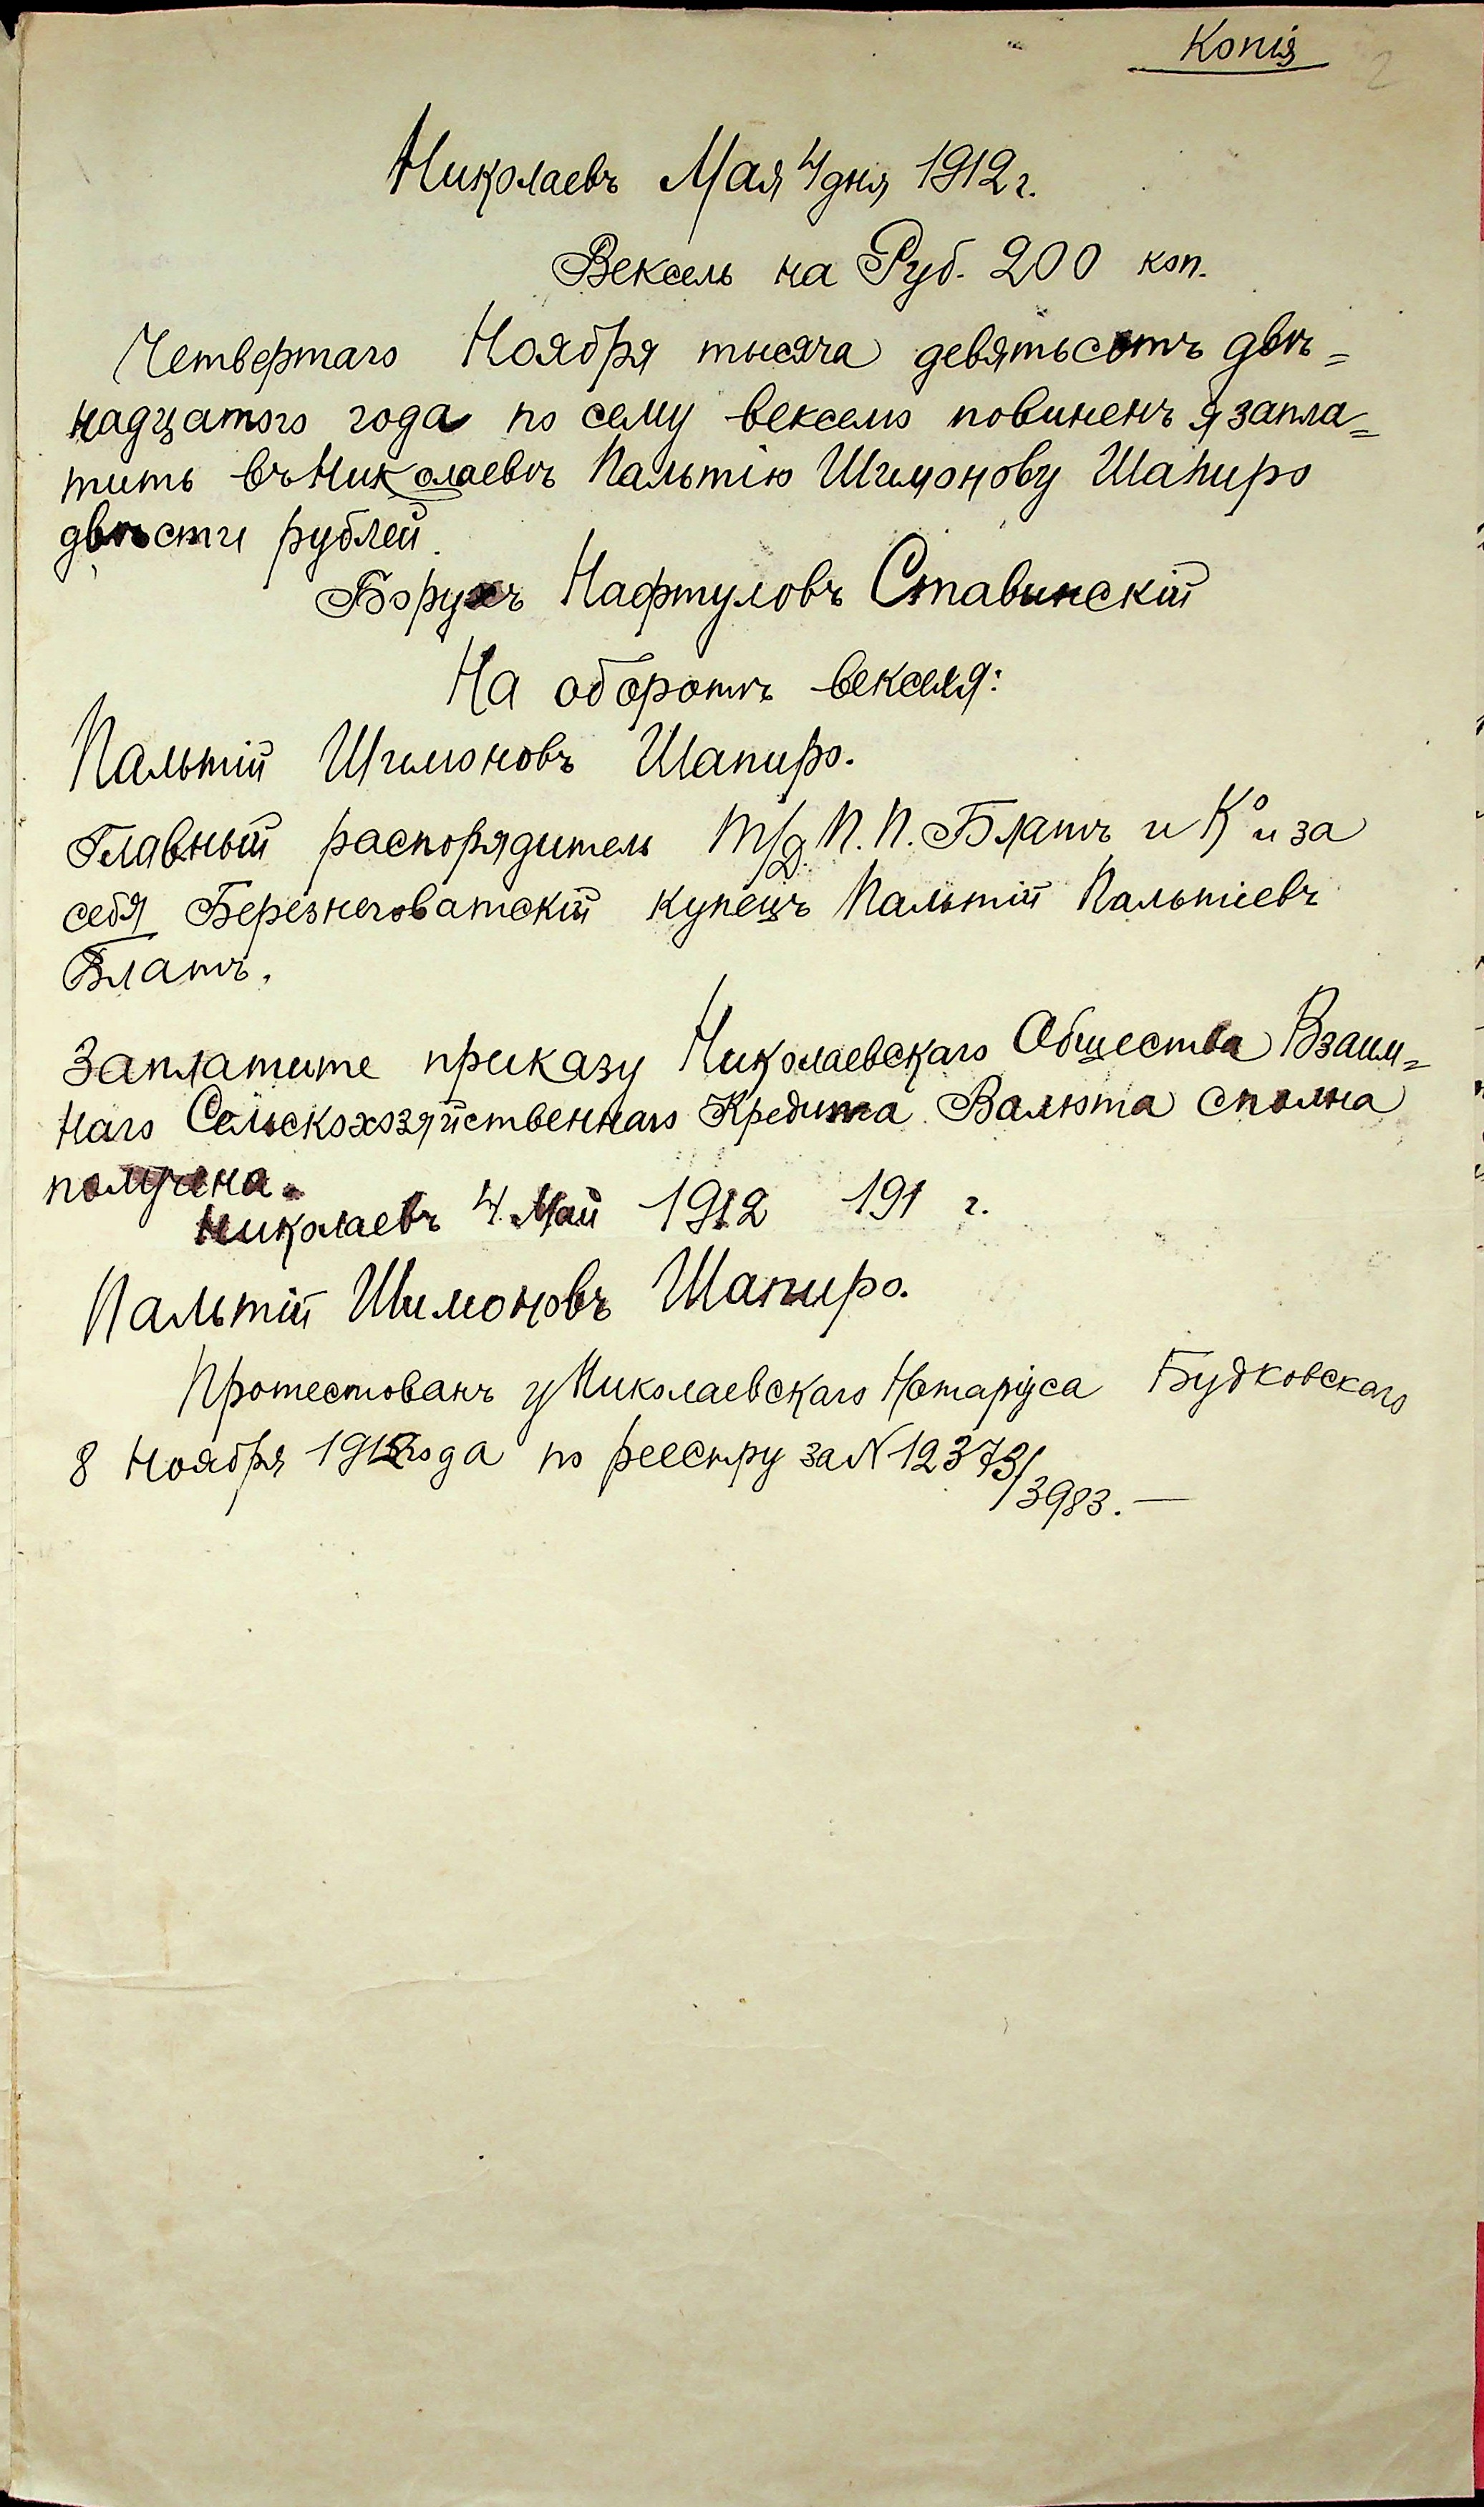 Копія
2
Николаевъ Мая 4 дня 1912 г.
Вексель на Руб. 200 коп.
Четвертаго Ноября тысяча девятьсотъ двѣ=
надцатого года по сему векселю повиненъ я запла=
тить въ Николаевѣ Пальтію Шимонову Шапиро
двѣсти рублей.
Борухъ Нафтуловъ Ставинскій
На оборотѣ векселя:
Пальтій Шимоновъ Шапиро.
Главный распорядитель Т/Д. П. П. Блатъ и К° и за
себя Березнеговатскій купецъ Пальтій Пальтіевъ
Блатъ.
Заплатите приказу Николаевскаго Общества Взаим=
наго Сельскохозяйственнаго Кредита. Валюта сполна
получена.
Николаевъ 4 Май 1912 191 г.
Пальтій Шимоновъ Шапиро.
Протестованъ у Николаевскаго Нотаріуса Будковскаго
8 Ноября 1912 года по реестру за N 12373/3983.—